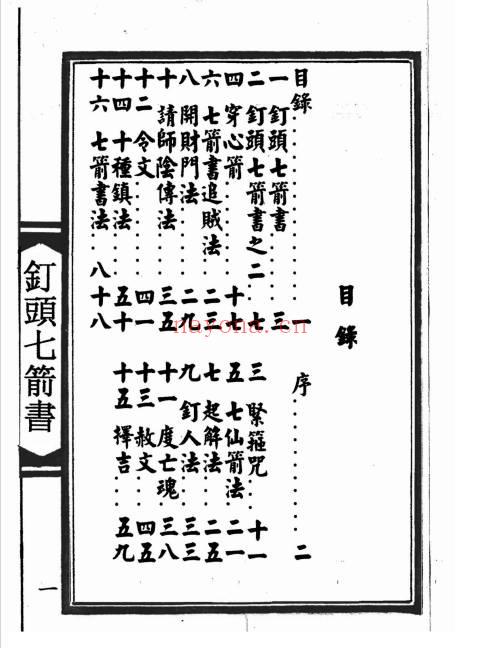 目錄
目錄……一 序……二
一 釘頭七箭書……三
二 釘頭七箭書之二 七 三 緊箍咒……十一
四 穿心箭……十七 五 七仙箭法……二一
六 七箭書追賊法……二三 七 起解法……二五
八 開財門法……二九 九 釘人法……三三
十 請師陰傳法……三五 十一 度亡魂……三八
十二 令文……四一 十三 赦文……四五
十四 十種鎮法……五十 十五 擇吉……五九
十六 七箭書法……八十八
釘頭七箭書
一
nayona.cn